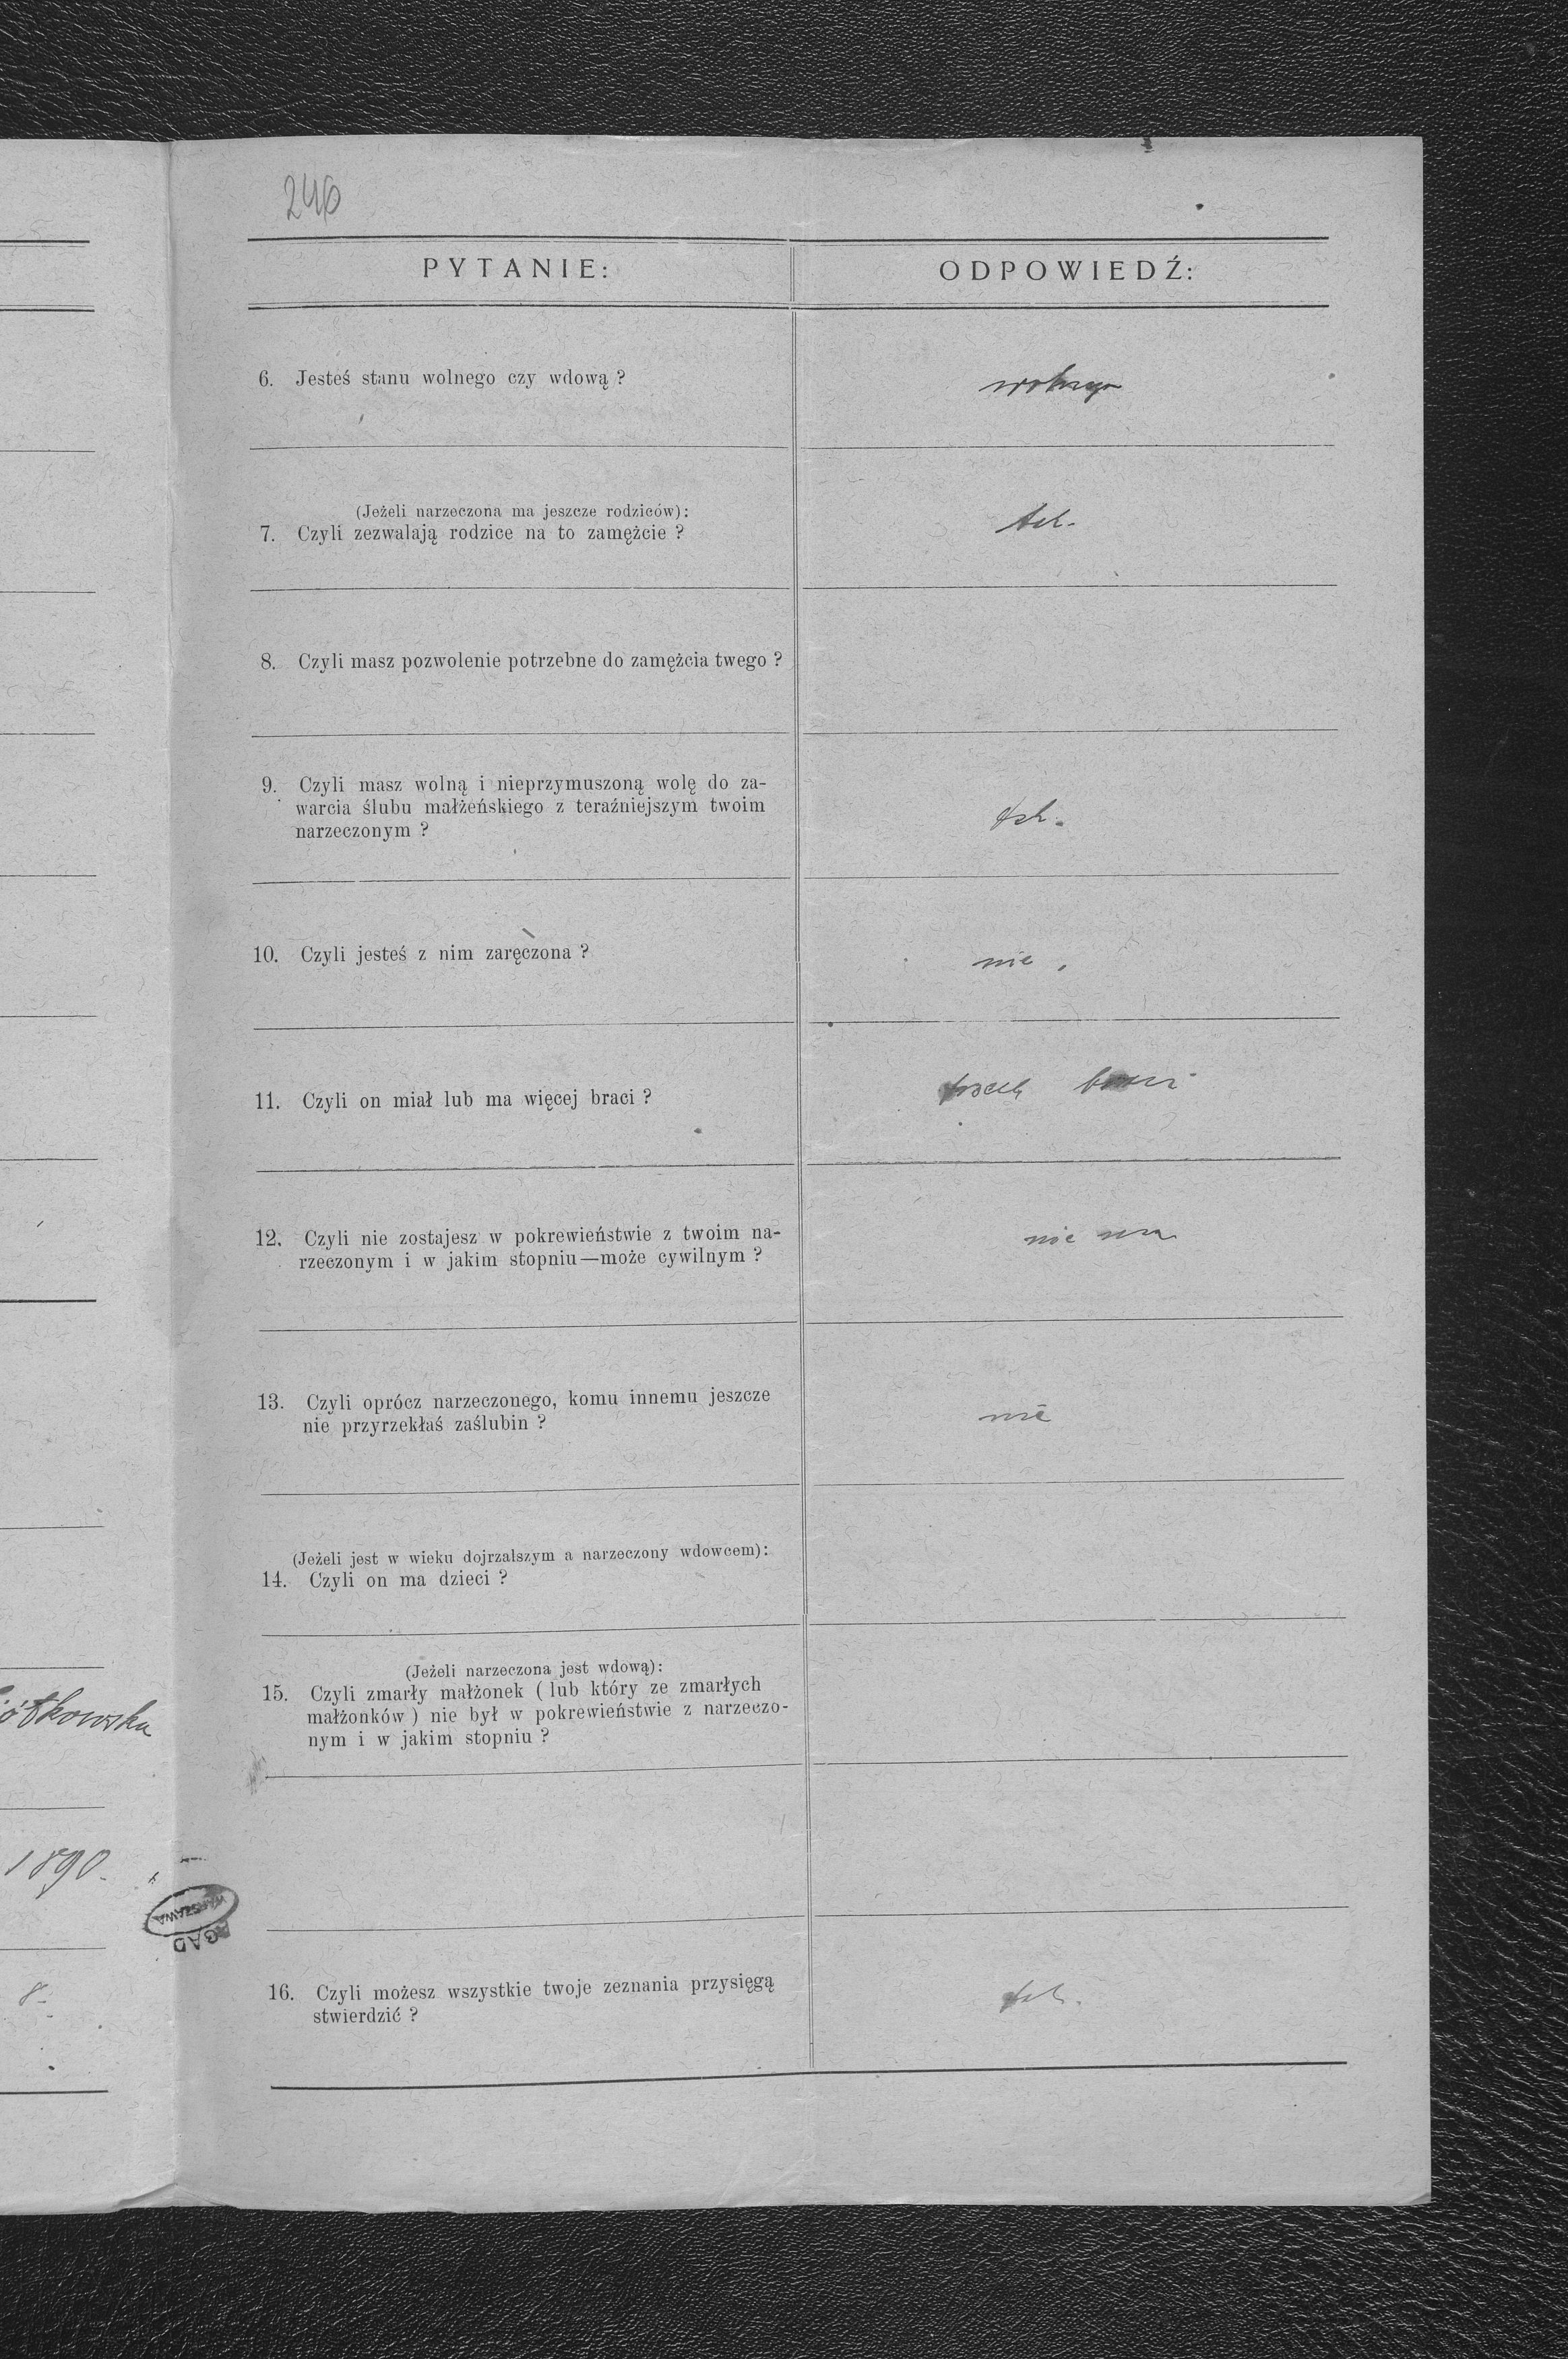 246
PYTANIE:
ODPOWIEDŹ:
6. Jesteś stanu wolnego czy wdową ?
wolnego
(Jeżeli narzeczona ma jeszcze rodziców):
7. Czyli zezwalają rodzice na to zamężcie ?
tak.
8. Czyli masz pozwolenie potrzebne do zamężcia twego ?
9. Czyli masz wolną i nieprzymuszoną wolę do za-
warcia ślubu małżeńskiego z teraźniejszym twoim
narzeczonym ?
tak.
10. Czyli jesteś z nim zaręczona ?
nie.
11. Czyli on miał lub ma więcej braci ?
trzech braci
12. Czyli nie zostajesz w pokrewieństwie z twoim na-
rzeczonym i w jakim stopniu—może cywilnym ?
nie ma
13. Czyli oprócz narzeczonego, komu innemu jeszcze
nie przyrzekłaś zaślubin ?
nie
(Jeżeli jest w wieku dojrzalszym a narzeczony wdowcem):
14. Czyli on ma dzieci ?
(Jeżeli narzeczona jest wdową):
15. Czyli zmarły małżonek ( lub który ze zmarłych
małżonków ) nie był w pokrewieństwie z narzeczo-
nym i w jakim stopniu ?
16. Czyli możesz wszystkie twoje zeznania przysięgą
stwierdzić ?
tak.
1890.
8.
AGAD
WARSZAWA